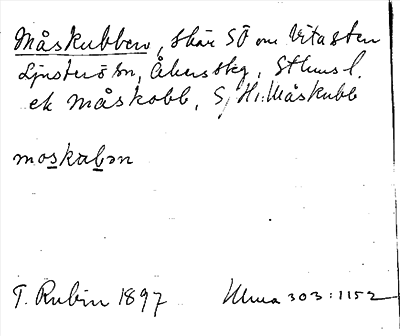 Måskubben, skär SÖ om Vitasten
Ljusterö sn, Åkers skg, Sthms l.
ek måskobb, S, Hi: Måskubb
moskabən
T. Rubin 1897 Uma 303:1152